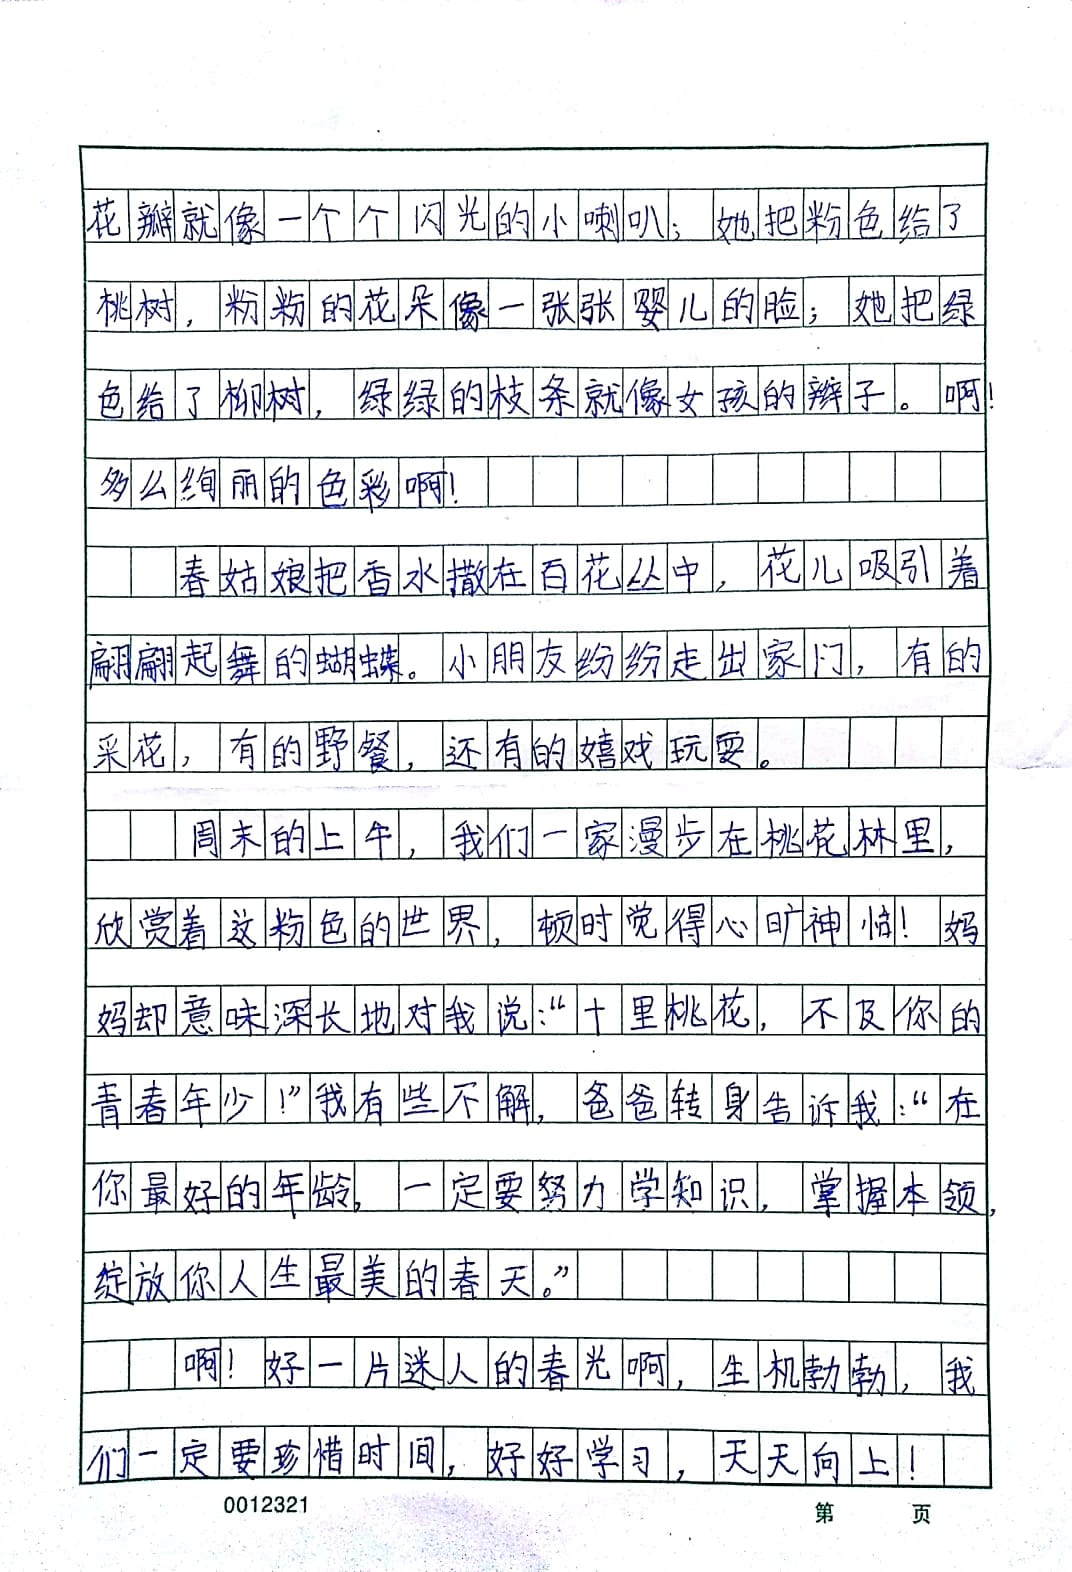 花瓣就像一个个闪光的小喇叭；她把粉色给了
桃树，粉粉的花朵像一张张婴儿的脸；她把绿
色给了柳树，绿绿的枝条就像女孩的辫子。啊！
多么绚丽的色彩啊！
春姑娘把香水撒在百花丛中，花儿吸引着
翩翩起舞的蝴蝶。小朋友纷纷走出家门，有的
采花，有的野餐，还有的嬉戏玩耍。
周末的上午，我们一家漫步在桃花林里，
欣赏着这粉色的世界，顿时觉得心旷神怡！妈
妈却意味深长地对我说：“十里桃花，不及你的
青春年少！”我有些不解，爸爸转身告诉我：“在
你最好的年龄，一定要努力学知识，掌握本领，
绽放你人生最美的春天。”
啊！好一片迷人的春光啊，生机勃勃，我
们一定要珍惜时间，好好学习，天天向上！
0012321 第 页